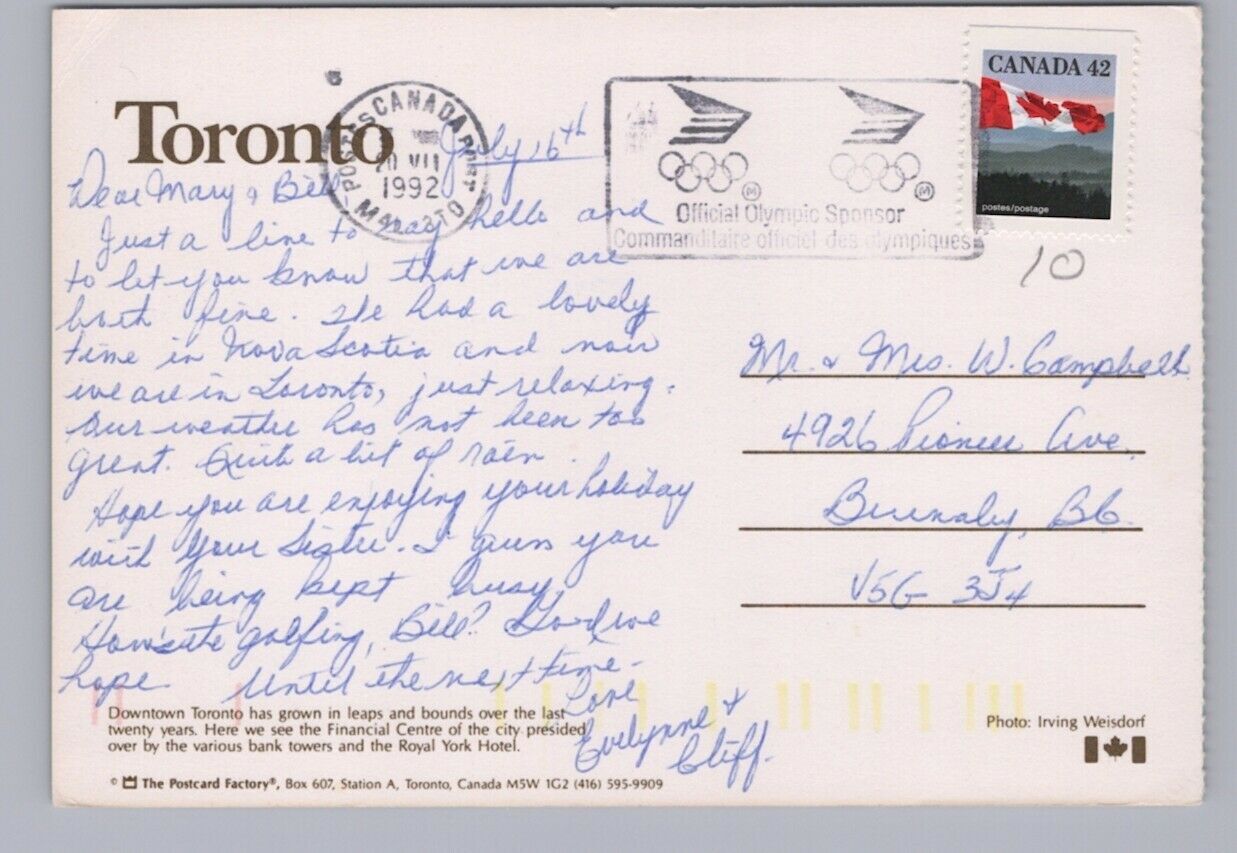 Toronto
POSTES CANADA POST
20 VII
1992
July 16th
CANADA 42
postes/postage
Official Olympic Sponsor
Commanditaire officiel des olympiques
10
Dear Mary & Bill -
Just a line to say hello and
to let you know that we are
both fine. We had a lovely
time in Nova Scotia and now
we are in Toronto, just relaxing.
Our weather has not been too
great. Quite a bit of rain.
Hope you are enjoying your holiday
with your Sister. I guess you
are being kept busy.
How's the golfing, Bill? Good we
hope. Until the next time -
Love
Evelynne &
Cliff.
Mr. & Mrs. W. Campbell
4926 Pioneer Ave.
Burnaby, BC.
V5G 3J4
Downtown Toronto has grown in leaps and bounds over the last
twenty years. Here we see the Financial Centre of the city presided
over by the various bank towers and the Royal York Hotel.
© The Postcard Factory®, Box 607, Station A, Toronto, Canada M5W 1G2 (416) 595-9909
Photo: Irving Weisdorf